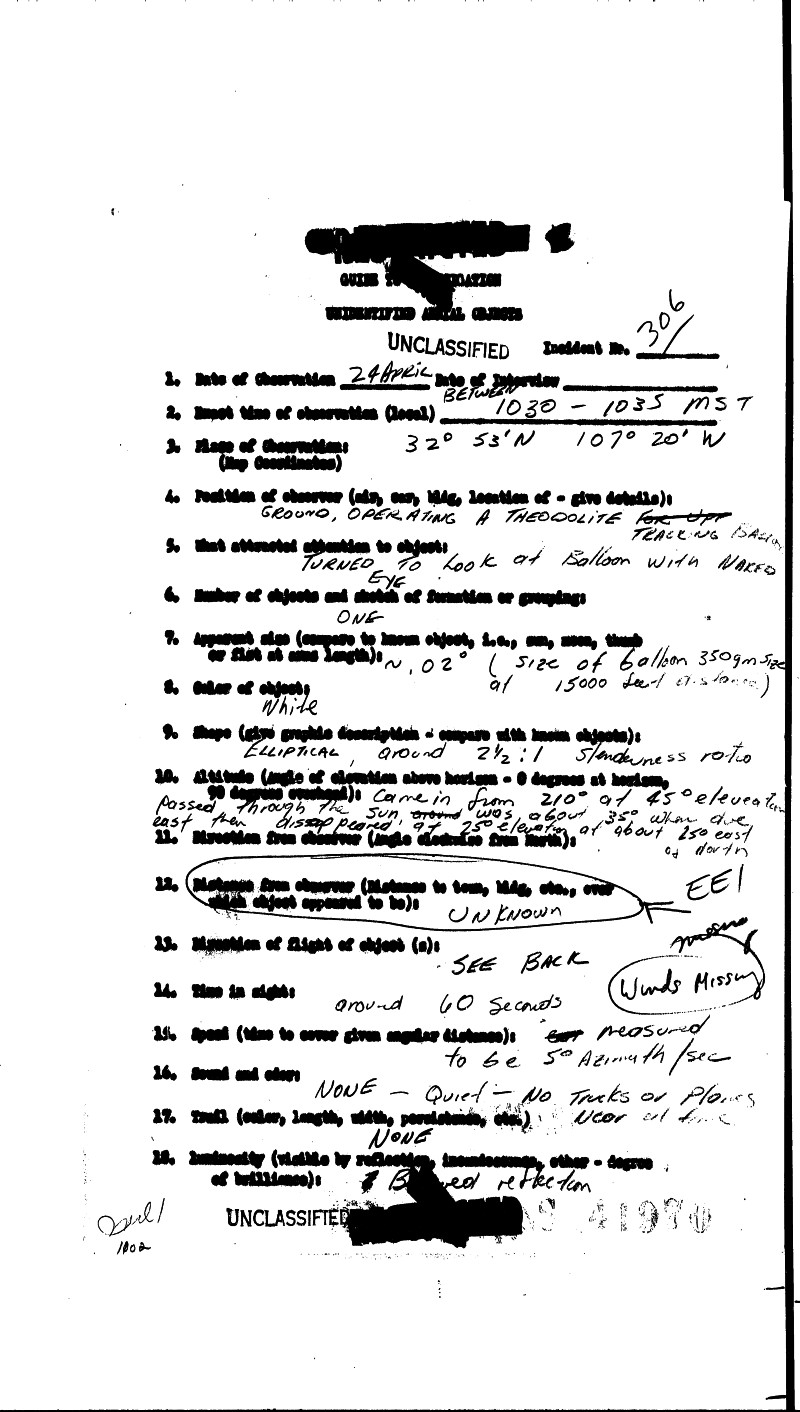 GUIDE TO
UNIDENTIFIED AERIAL OBJECTS
UNCLASSIFIED Incident No. 306
1. Date of Observation 24 APRIL Date of Interview
BETWEEN
2. Exact time of observation (local) 1030 - 1035 MST
3. Place of Observation: 32° 53'N 107° 20' W
(Map Coordinates)
4. Position of observer (air, car, bldg, location of - give details):
GROUND, OPERATING A THEODOLITE
TRACKING
5. What attracted attention to object:
TURNED TO Look at Balloon with NAKED
EYE
6. Number of objects and sketch of formation or grouping:
ONE
7. Apparent size (compare to known object, i.e., sun, moon, thumb
or fist at arms length): ~ .02° (size of balloon 350gm size
at 15000 feet distance)
8. Color of object:
White
9. Shape (give graphic description - compare with known objects):
ELLIPTICAL, around 2½:1 slenderness ratio
10. Altitude (Angle of elevation above horizon - 0 degrees at horizon,
90 degrees overhead): Came in from 210° at 45° elevation
passed through the sun was about 35° when due
east then dissappeared, at 25° elevation at about 25° east
of North
11. Direction from observer (Angle clockwise from North):
12. Distance from observer (Distance to town, bldg, etc., over
which object appeared to be):
UNKNOWN
EEI
13. Direction of flight of object (s):
SEE BACK
Winds Missing
14. Time in sight:
around 60 Seconds
15. Speed (time to cover given angular distance): measured
to be 5° Azimuth/sec
16. Sound and odor:
NONE - Quiet - No Trucks or Planes
Near at time
17. Trail (color, length, width, persistence, etc.)
NONE
18. Luminosity (visible by reflection, incandescence, other - degree
of brilliance): reflection
UNCLASSIFIED